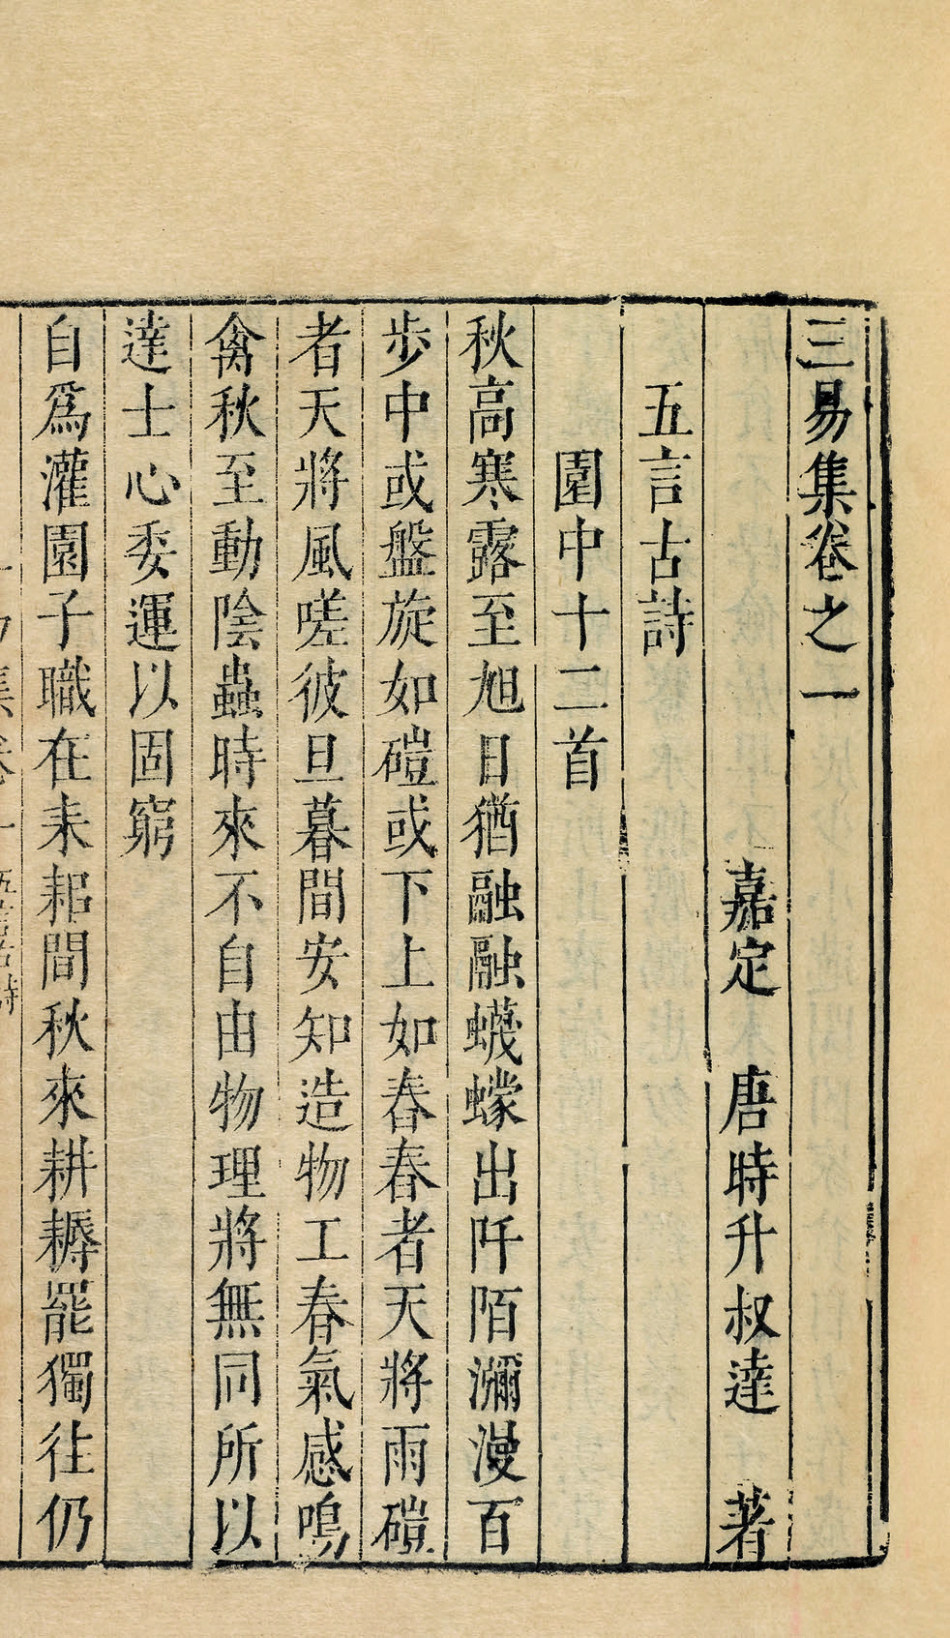 三易集卷之一
嘉定　唐時升叔達　著
五言古詩
園中十二首
秋高寒露至旭日猶融融蠛蠓出阡陌瀰漫百
步中或盤旋如磑或下上如舂舂者天將雨磑
者天將風嗟彼旦暮間安知造物工春氣感鳴
禽秋至動陰蟲時來不自由物理將無同所以
達士心委運以固窮
自爲灌園子職在耒耜間秋來耕耨罷獨往仍